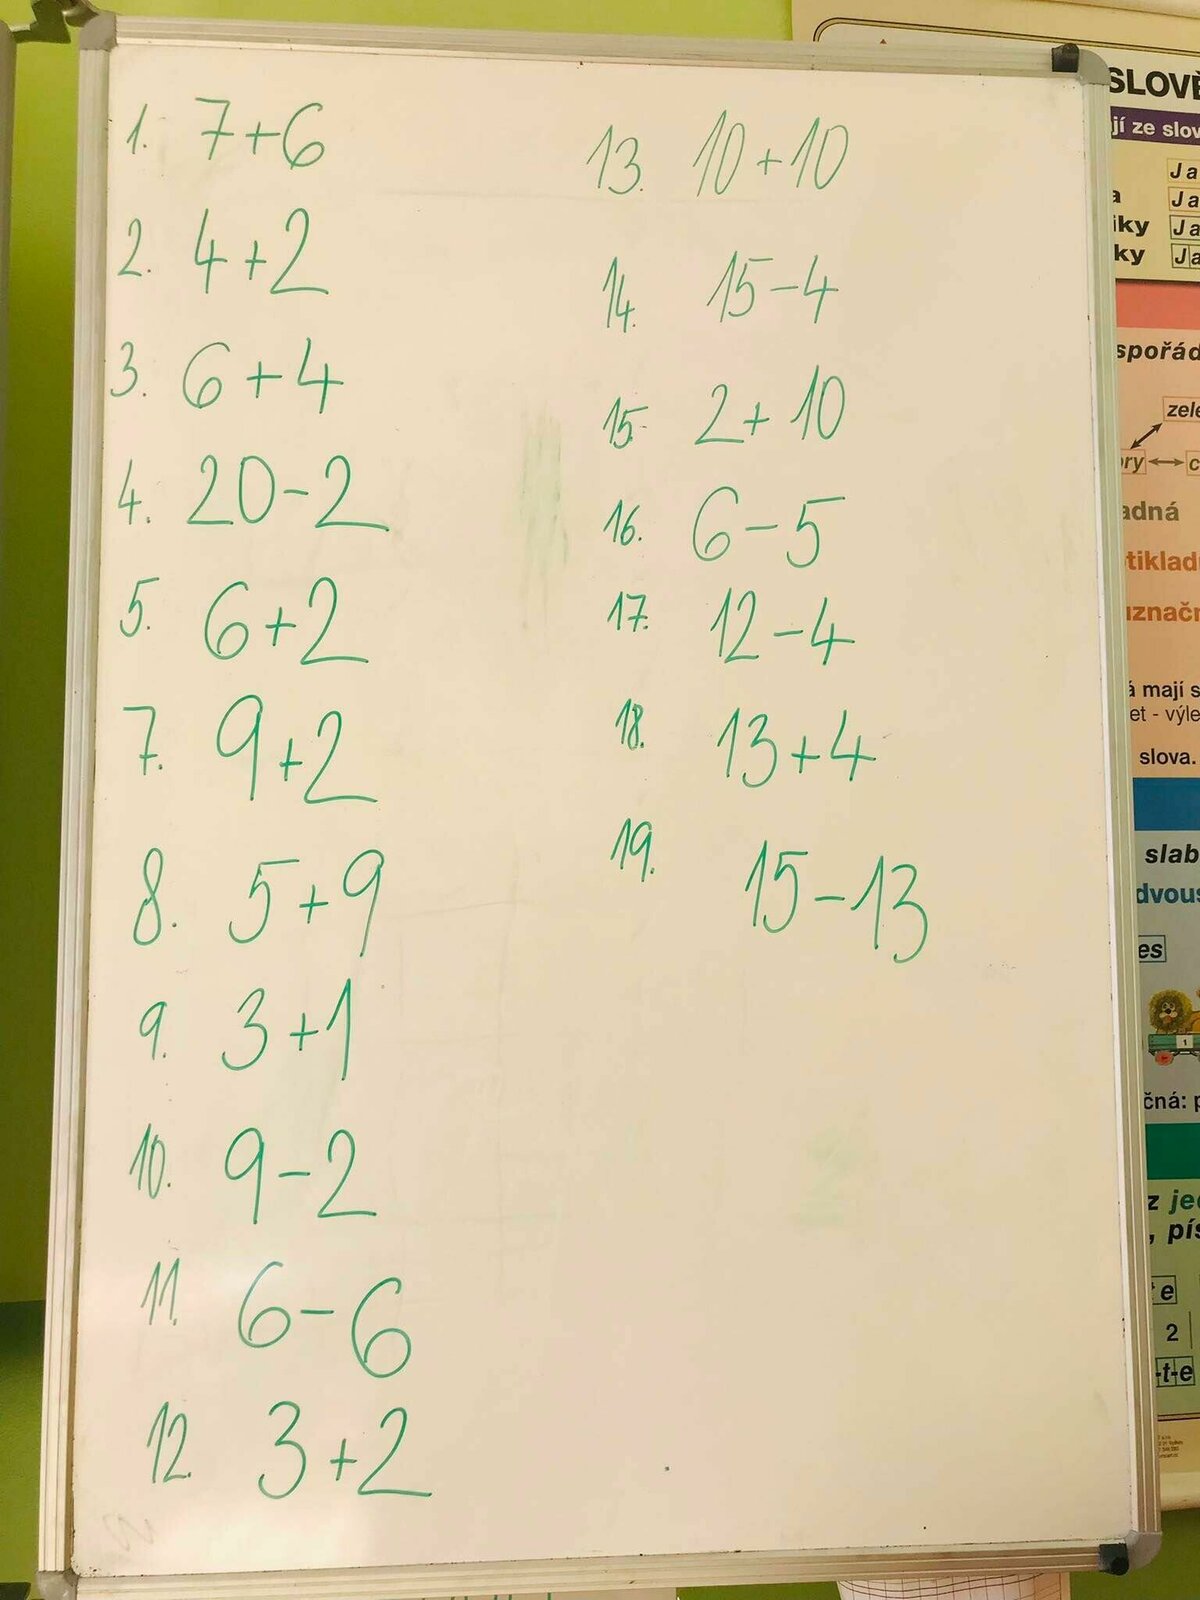 1. 7+6
2. 4+2
3. 6+4
4. 20-2
5. 6+2
7. 9+2
8. 5+9
9. 3+1
10. 9-2
11. 6-6
12. 3+2
13. 10+10
14. 15-4
15. 2+10
16. 6-5
17. 12-4
18. 13+4
19. 15-13
SLOVĚ
jí ze slov
Ja
a Ja
iky Ja
ky Ja
spořád
zele
ry
adná
tiklad
uznačn
á mají s
et - výle
slova.
slab
dvous
es
1
čná: p
z jed
, pís
e
2
-t-e